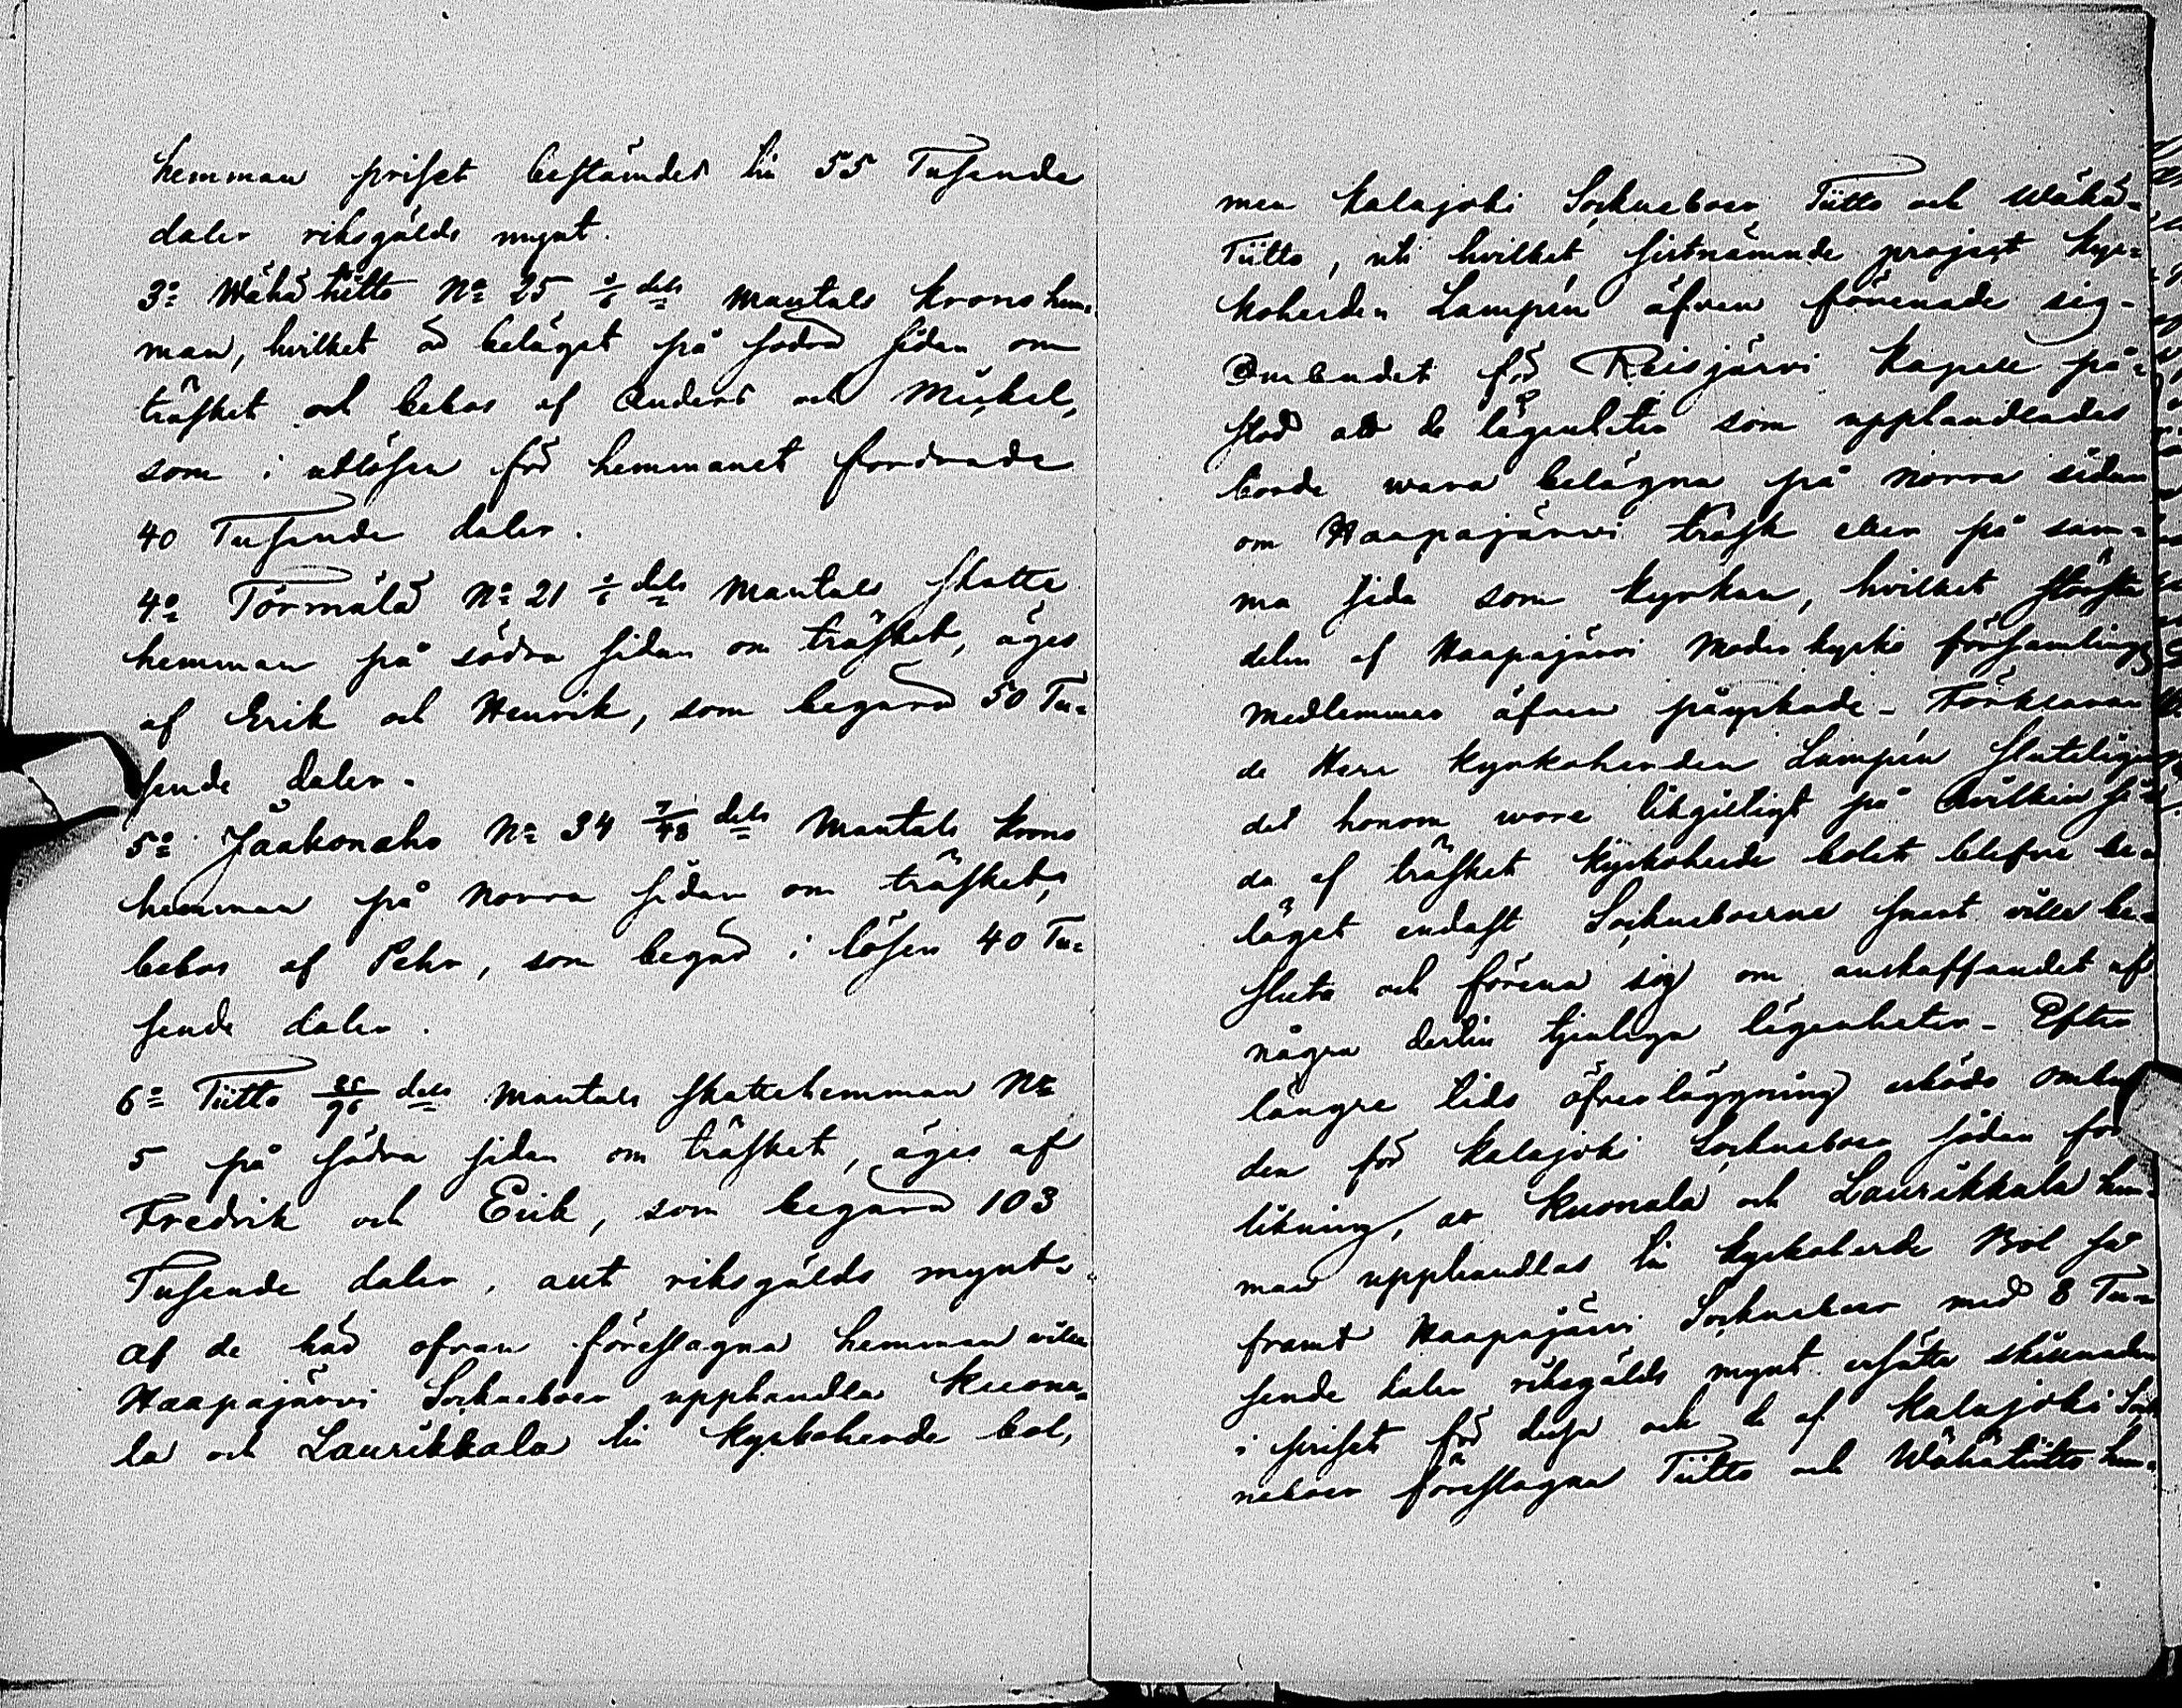 hemman priset bestämdes till 55 Tusende
daler riksgälds mynt.
3:o Wähä tiitto No 25 1/6 dels mantals krono hem=
man, hvilket är beläget på södra sidan om
träsket och bebos af Anders och Mickel,
som i utlösen för hemmanet fordrade
40 Tusende daler.
4:o Törmälä No 21 1/6 dels mantals skatte
hemman på södra sidan om träsket, äges
af Erik och Henrik, som begära 50 Tu=
sende daler.
5:o Jaakonaho No 34 7/48 dels mantals krono
hemman på norra sidan om träsket,
bebos af Pehr, som begär i lösen 40 Tu=
sende daler.
6:o Tiitto 25/96 dels mantals skattehemman No
5 på södra sidan om träsket, äges af
Fredrik och Erik, som begära 103
Tusende daler, allt riksgälds mynt.
Af de här ofvan föreslagna hemman ville
Haapajärvi Sockneboer upphandla Kuona=
la och Laurikkala till Kyrkoherde bol,
men Kalajoki Sockneboer Tiitto och Wähä=
Tiitto, uti hvilket sistnämnde project kyr=
koherden Lampén äfven förenade sig.
Ombudet för Reisjärvi Kapell på=
stod att de lägenheter som upphandlades
borde wara belägna på norra sidan
om Haapajärwi träsk eller på sam=
ma sida som kyrkan, hvilket största
delen af Haapajärvi Moder kyrko församlings
medlemmar äfven påyrkade. Förklaran
de Herr kyrkoherden Lampén sluteligen
det honom wore likgiltigt på hvilken si
da af träsket Kyrkoherde bolet blefve be=
läget endast Sockneboerne snart ville be=
sluta och förena sig om anskaffandet af
några dertill tjenliga lägenheter. Efter
längre tids öfverläggning erböds ombu
den för Kalajoki Sockneboer sådan för
likning, at Kuonala och Laurikkala hem=
man upphandlas till kyrkoherde Bol så
framt Haapajärvi Sockneboer med 8 Tu=
sende daler riksgälds mynt ersätta skillnaden
i priset för dessa och de af Kalajoki Sock
neboer föreslagna Tiitto och Wähätiitto hem=